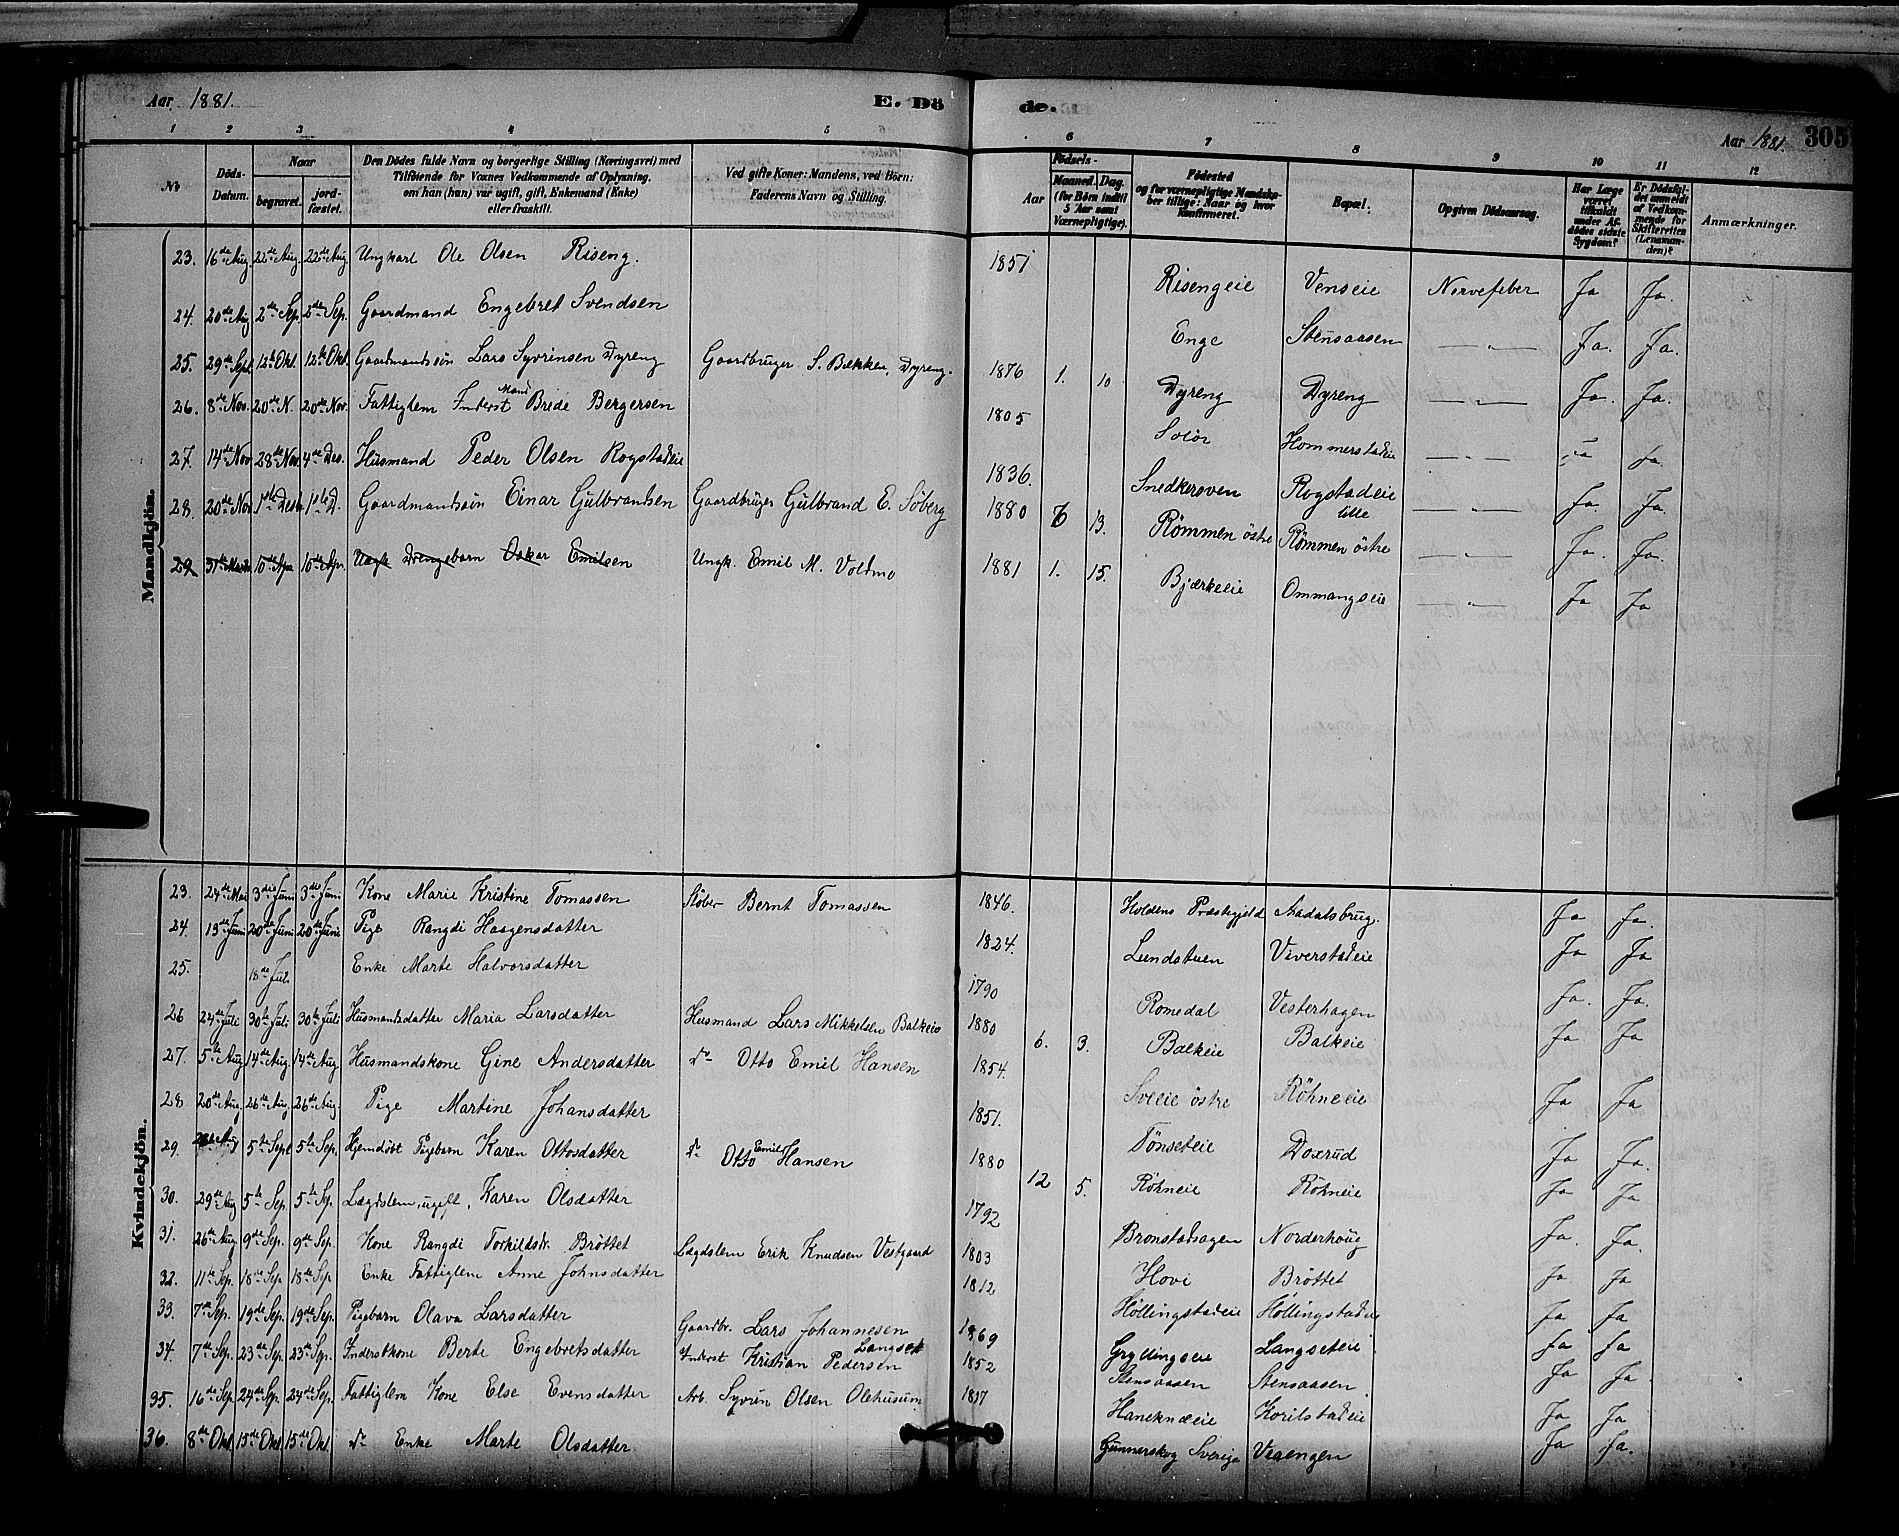 Aar 1881.
E. Dö
de.
Aar 1881. 305
1 2 3 4 5 6 7 8 9 10 11 12
No
Döds-Datum.
Naar
begravet.
jord-fæstet.
Den Dödes fulde Navn og borgerlige Stilling (Næringsvei) med
Tilföiende for Voxnes Vedkommende af Oplysning,
om han (hun) var ugift, gift, Enkemand (Enke)
eller fraskilt.
Ved gifte Koner: Mandens, ved Börn:
Faderens Navn og Stilling.
Aar
Födsels-
Maaned. Dag.
(for Börn indtil
5 Aar samt
Værnepligtige).
Födested
og for værnepligtige Mandska-
ber tillige: Naar og hvor
konfirmeret.
Bopæl.
Opgiven Dödsaarsag.
Har Læge
været
tilkaldt
under Af-
dödes sidste
Sygdom?
Er Dödsfal-
det anmeldt
af Vedkom-
mende for
Skifteretten
(Lensman-
den)?
Anmærkninger.
Mandkjön.
23. 16de Aug. 22de Aug. 22de Aug Ungkarl Ole Olsen Riseng. 1851 Risengeie Venseie Nervefeber Ja Ja.
24. 20de Aug 2de Sep. 2de Sep. Gaardmand Engebret Svendsen Enge Stensaasen — " — Ja. Ja.
25. 29de Sept. 12te Okt. 12te Okt. Gaardmandsön Lars Syvrinsen Dyreng Gaardbruger S. Bækken, Dyreng. 1876 1. 10 Dyreng Dyreng — " — Ja. Ja.
26. 8de Nov. 20de N. 20de Nov. Fattiglem Inderst Mand Brede Bergersen 1805 Solör Hommerstadeie — " — Ja.
27. 14de Nov 28de Nov. 4de Des. Husmand Peder Olsen Rogstadeie 1836. Snedkersven Rogstadeie — " — Ja Ja.
28. 20de Nov 1ste Desbr 1ste D. Gaardmandsön Einar Gulbrandsen Gaardbruger Gulbrand E. Söberg 1880 6 13. Römmen östre lille Römmen östre — " — Ja. Ja.
29 31te Marts 10de Apr 10de Apr. Ungk Drengebarn Oskar Emilsen Ungk. Emil M. Voldmo 1881 1. 15. Bjærkeeie Ommangseie — " — Ja Ja
Kvindekjön.
23. 24de Mai 3die Juni 3die Juni Kone Marie Kristine Tomassen Stöber Bernt Tomassen 1846. Holdens Præstegjeld Aadalsbrug. Ja Ja.
24. 13de Juni 20de Juni 20de Juni Pige Rangdi Haagensdatter 1824 Lundstuen Viverstadeie Ja Ja
25. 18de Juli Enke Marte Halvorsdatter 1790 Romedal Vesterhagen Ja. Ja.
26 24de Juli 30te Juli 30te Juli Husmandsdatter Maria Larsdatter Husmand Lars Mikkelsen Balkeie 1880 6. 3. Balkeie Balkeie Ja Ja
27. 5te Aug 14de Aug 14de Aug Husmandskone Gine Andersdatter do Otto Emil Hansen 1854. Sveie östre Röhneeie Ja Ja
28 20de Aug. 26de Aug. 26de Aug. Pige Martine Johansdatter 1851. Tönseteie Doxrud Ja Ja.
29. Aug 5te Sept 5te Sep. Hjemdöbt Pigebarn Karen Ottosdatter do Otto Emil Hansen 1880 12 5. Röhneie Röhneie Ja Ja
30. 29de Aug 5te Sep. 5te Sep. Lægdslem, ugift, Karen Olsdatter 1792 Bronstadhagen Norderhoug Ja. Ja.
31. 26de Aug 9de Sep. 9de Sep. Kone Rangdi Torkildsdr. Bröttet Lægdslem Erik Knudsen Vestgaard 1803 Hovi Bröttet Ja Ja
32. 11te Sep. 18de Sep 18de Sep Enke Fattiglem Anne Johnsdatter 1812 Höllingstadeie Höllingstadeie Ja Ja
33. 7de Sep. 19de Sep. 19de Sep. Pigebarn Olava Larsdatter Gaardbr. Lars Johannesen Langset 1869 Gryllingseie Langseteie Ja Ja
34. 7de Sep. 23de Sep. 23de Sep. Inderstkone Berte Engebretsdatter Inderst Kristian Pedersen 1852 Stensaasen Stensaasen Ja Ja.
35. 16de Sep. 24de Sep. 24de Sep. Fattiglem Kone Else Evensdatter Arb. Syvrin Olsen Olehusum 1817 Haneknæeie Korilstadeie Ja Ja
36. 8de Okt. 15de Okt. 15de Okt. do Enke Marte Olsdatter Gunnarskog Sverige Veaengen Ja Ja.